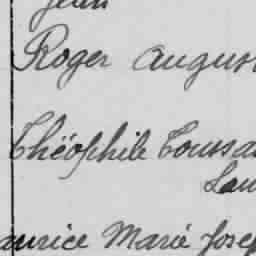 Jean
Roger Augus
Théophile Toussa
Lau
aurice Marie Josep